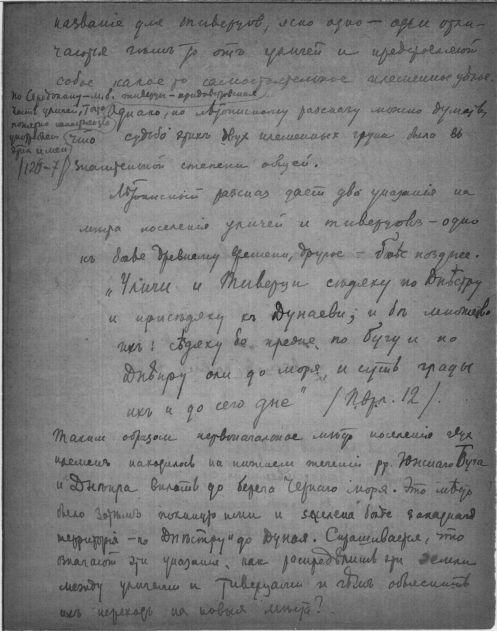 название для тиверцов, ясно одно — одни отли-
чаются чѣмъ-то отъ уличей и представляютъ
собою какое то самостоятельное племенное
Однако, по лѣтописному разсказу можно думать,
что судьба этихъ двух племенных групп была въ
значительной степени общей.
Лѣтописный разсказ дает два указанія на
мѣста поселенія уличей и тиверцовъ — одно
къ болѣе древнему времени, другое — болѣе позднее.
„Уличи и Тиверци сѣдяху по Днѣстру
и присѣдяху къ Дунаеви; и бѣ множество
ихъ; сѣдяху бо прежде по Бугу и по
Днѣпру оли до моря, и суть грады
ихъ и до сего дне" / Лавр. 12 /.
Таким образом первоначальное мѣсто поселенія двух
племенъ находилось на нижнем теченіи рр. Южнаго Буга
и Днѣпра вплоть до берега Чернаго моря. Это мѣсто
было затѣмъ покинуто ими и заселена болѣе западная
территорія — по Днѣстру до Дуная. Спрашивается, что
означают эти указанія, как распредѣлить эти земли
между уличами и Тиверцами и чѣмъ объяснить
ихъ переходъ на новыя мѣста?